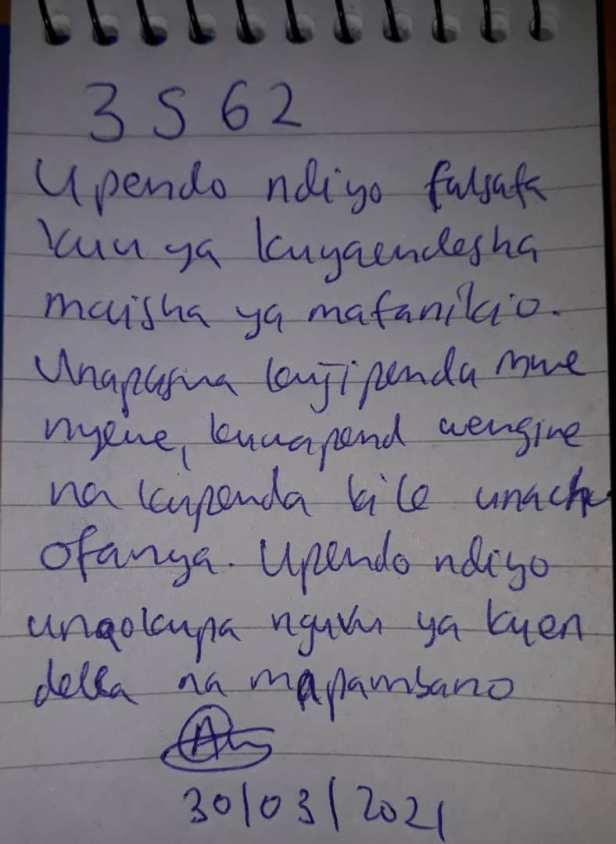 3 S 62
Upendo ndiyo falsafa
kuu ya kuyaendesha
maisha ya mafanikio.
Unapaswa kujipenda mwe
nyewe, kuwapend wengine
na kupenda kile unach
ofanya. Upendo ndiyo
unaokupa nguvu ya kuen
delea na mapambano
30/03/2021